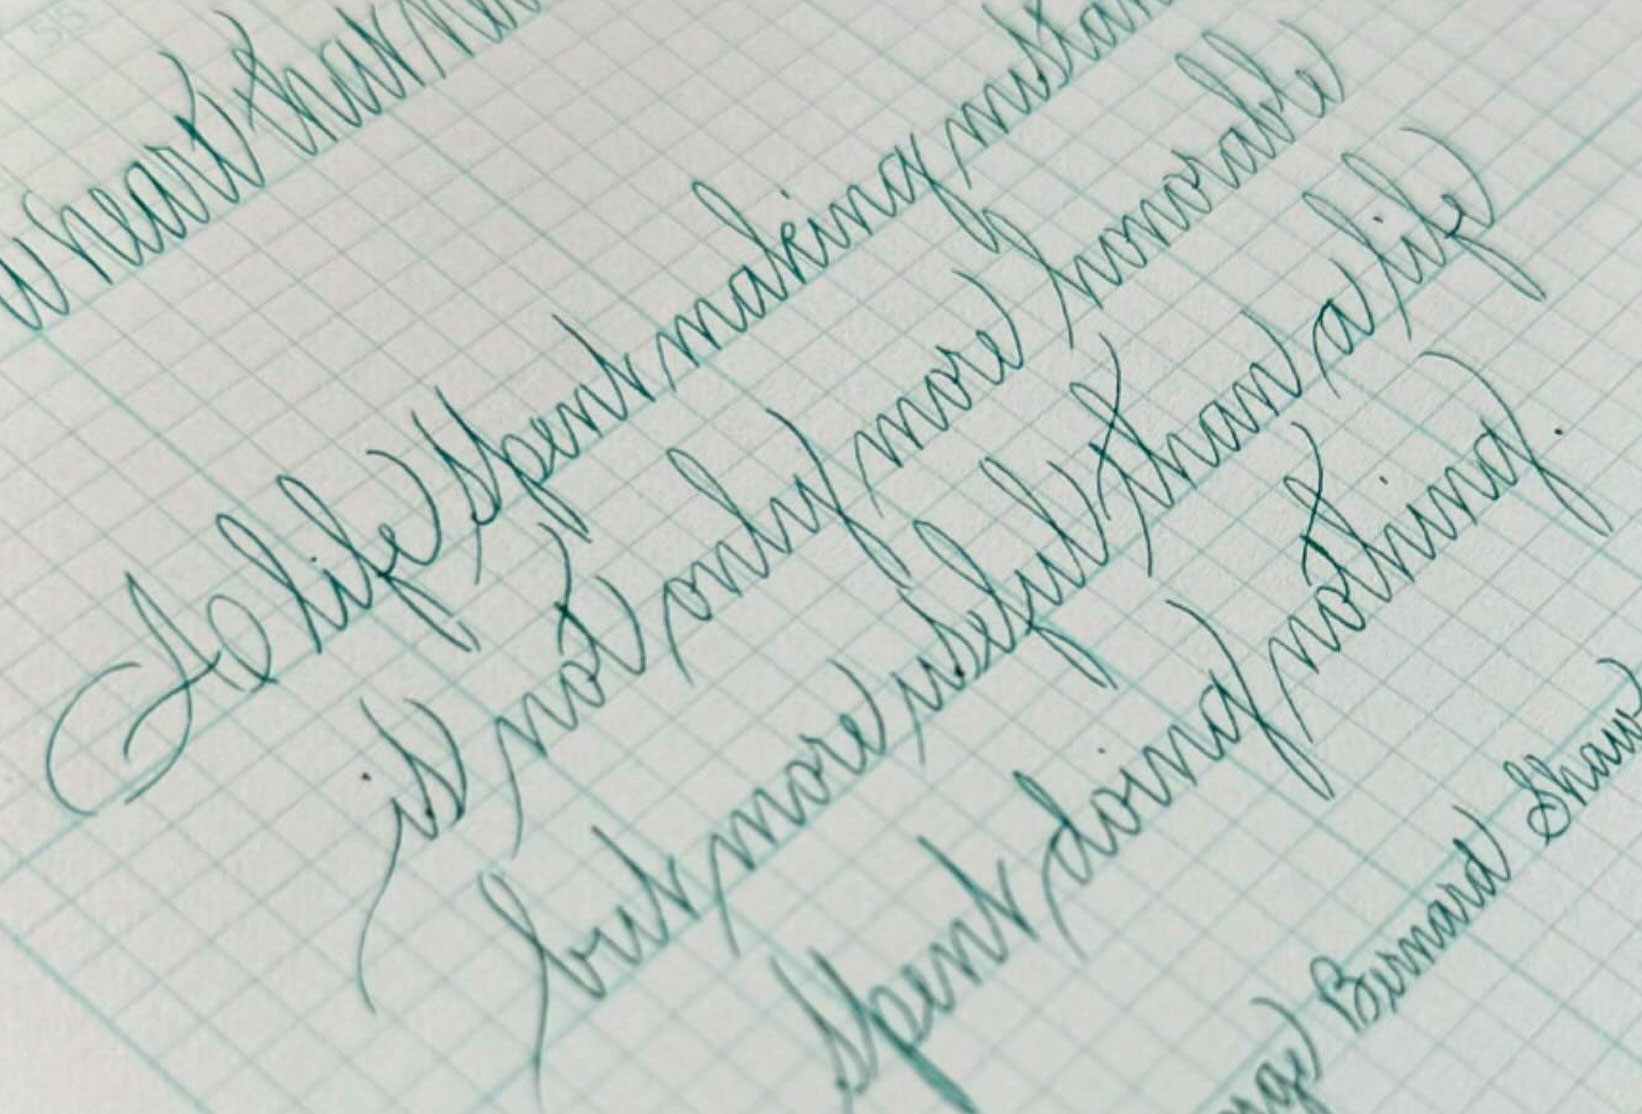 a heart that
A life spent making mistak
is not only more honorable
but more useful than a life
spent doing nothing.
Bernard Shaw